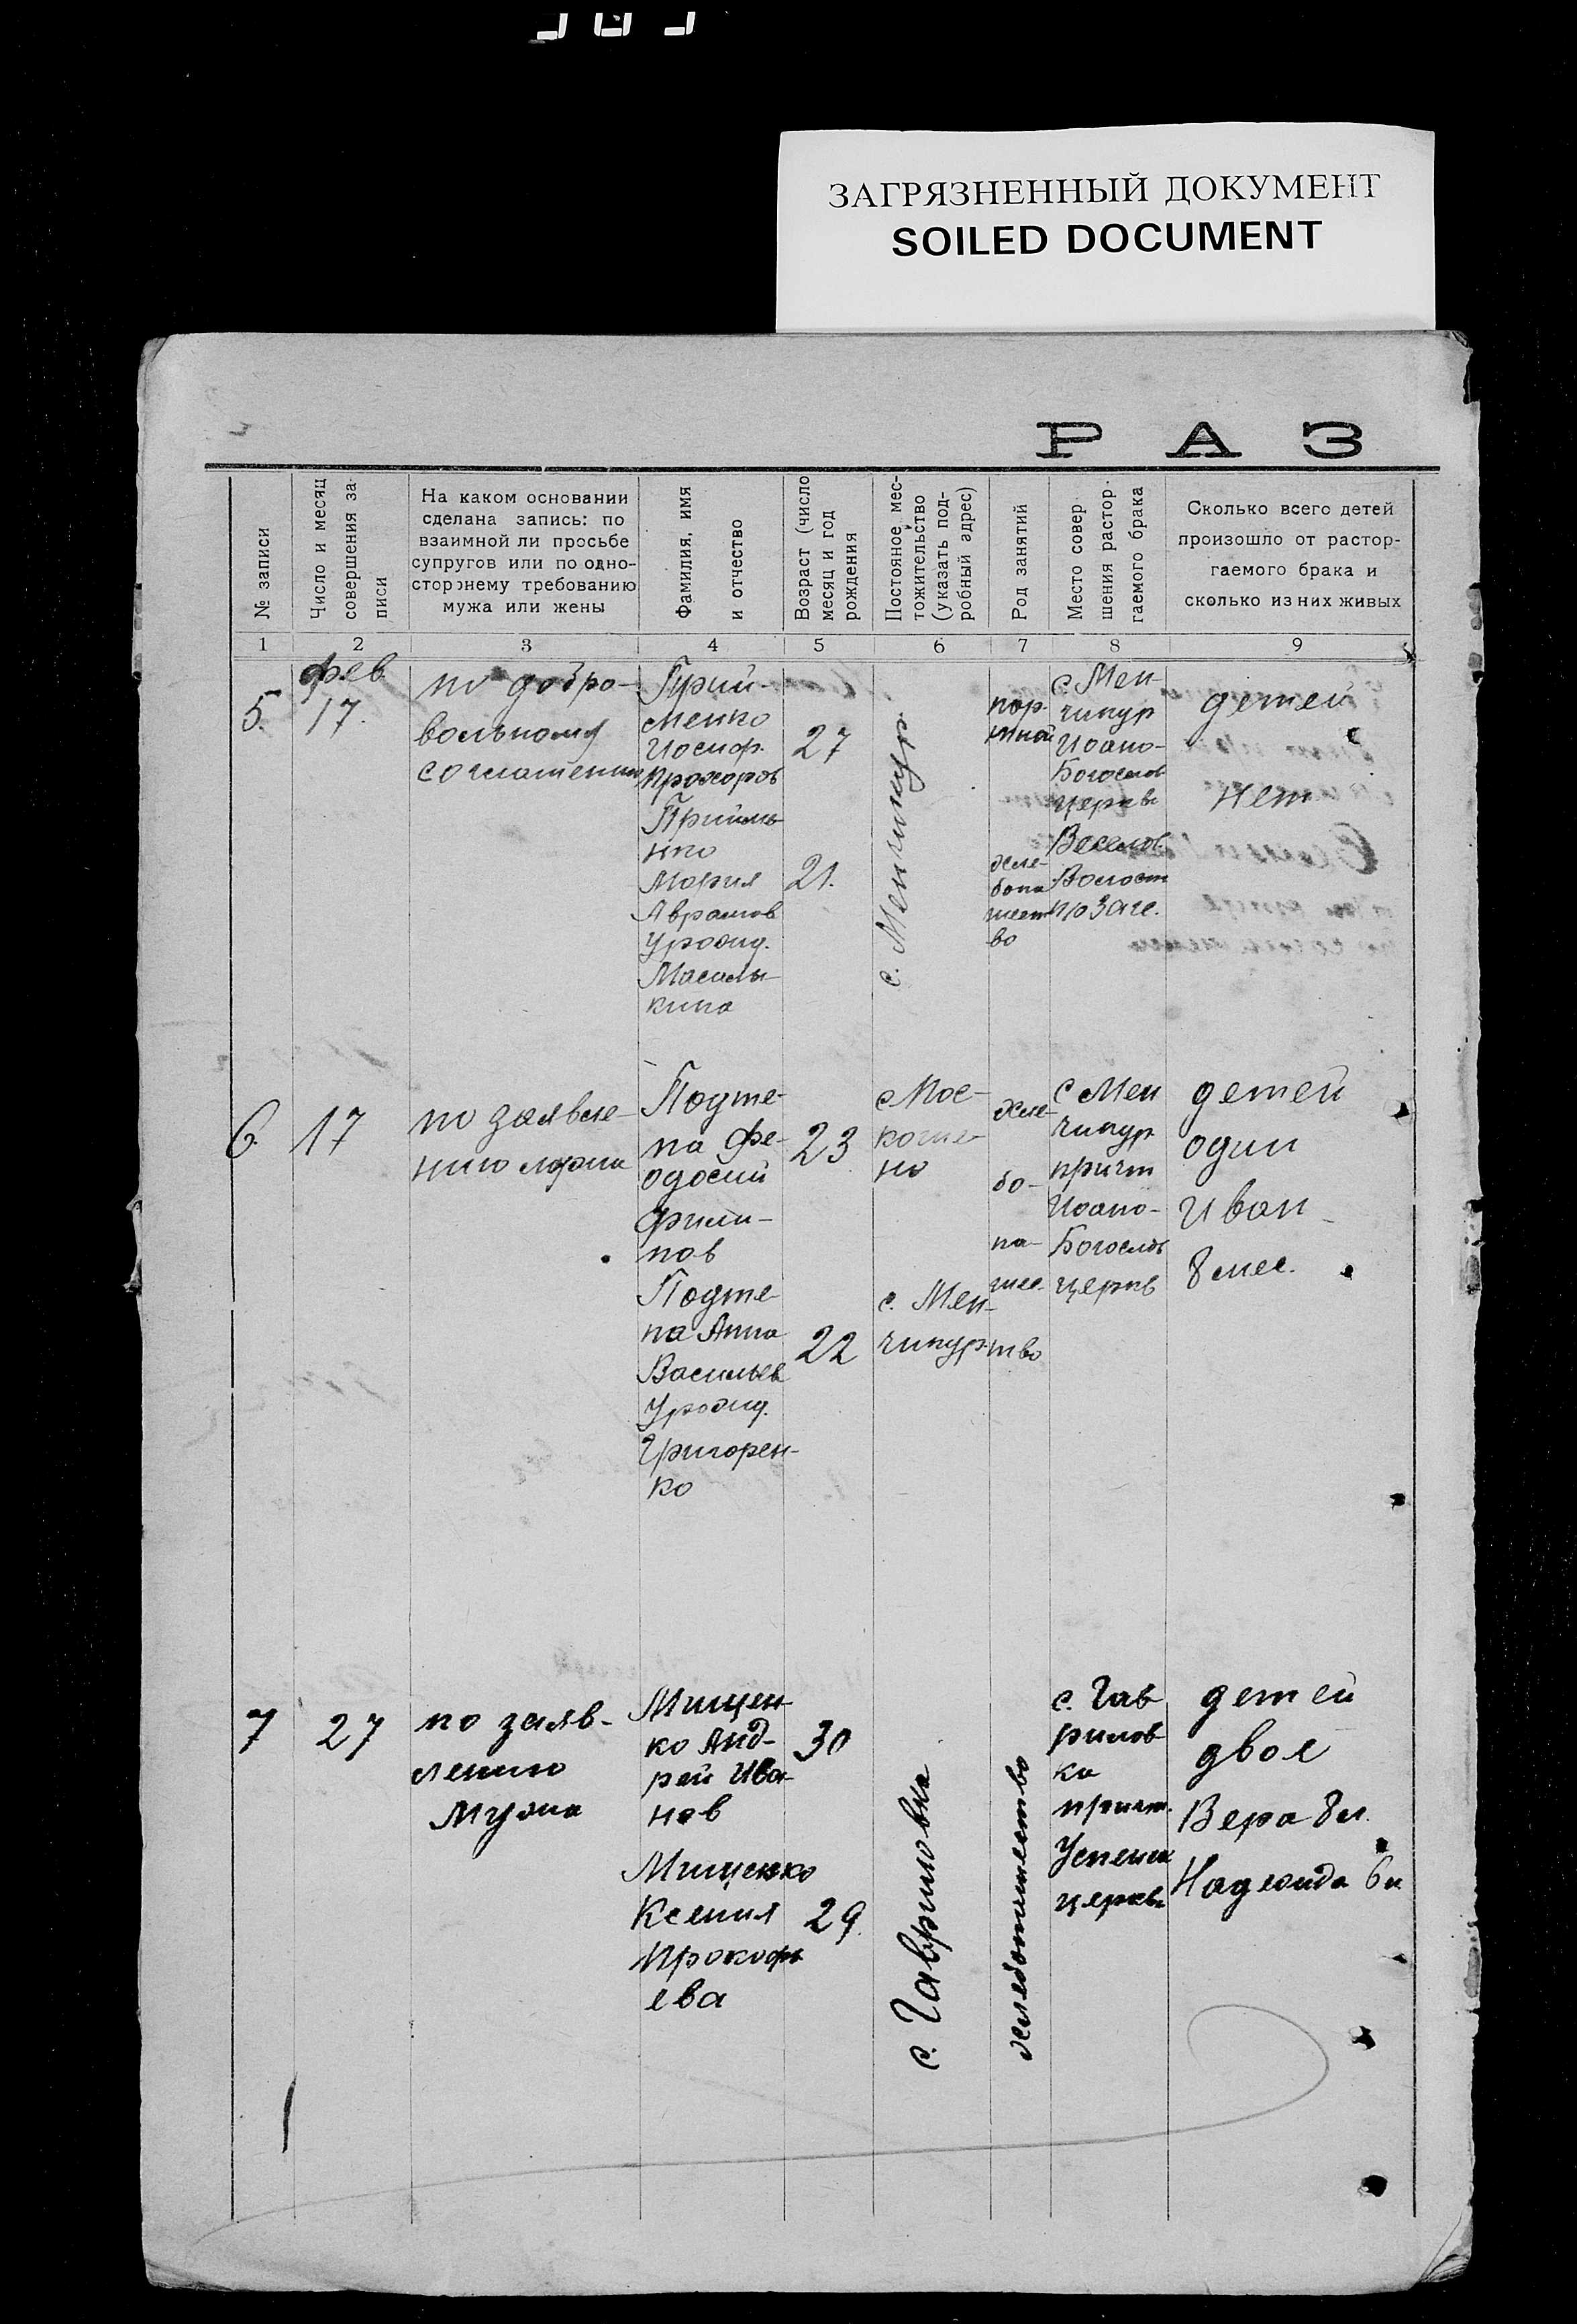 ЗАГРЯЗНЕННЫЙ ДОКУМЕНТ
SOILED DOCUMENT
РАЗ
№ записи
Число и месяц
совершения за-
писи
На каком основании
сделана запись: по
взаимной ли просьбе
супругов или по одно-
стороннему требованию
мужа или жены
Фамилия, имя
и отчество
Возраст (число
месяц и год
рождения
Постояное мес-
тожительство
(указать под-
робный адрес)
Род занятий
Место совер
шения растор.
гаемого брака
Сколько всего детей
произошло от растор-
гаемого брака и
сколько из них живых
1 2 3 4 5 6 7 8 9
5.
фев
17.
по добро-
вольному
соглашению
менко
Иосиф.
Прохоров
27
Мария
Аврамов
Урожд.
Масалы-
кина
21.
с. Менчикур.
порт-
ной
хле-
бопа
шест
во
с. Мен
чикур
Иоано-
Богослов
церкви
Веселов.
Волост
детей
нет
6.
17
по заявле-
нию мужа
Подте-
па Фе-
одосий
Филип-
пов
23
Подте-
па Анна
Васильев
Урожд.
Григорен-
ко
22
с. Мен-
чикур
хле-
бо-
па-
шес-
тво
с Мен
чикур
причт
Иоано-
Богослов
церкв
детей
один
Иван
8 мес.
7
27
по заяв-
лению
мужа
Мищен-
ко Анд-
рей Ива-
нов
30
Мищенко
Ксения
Прокофь
ева
29.
с. Гавриловка
хлебопашество
с. Гав
рилов
ка
причт.
Успенск
церкви
детей
двое
Вера 8 л.
Надежда 6 л